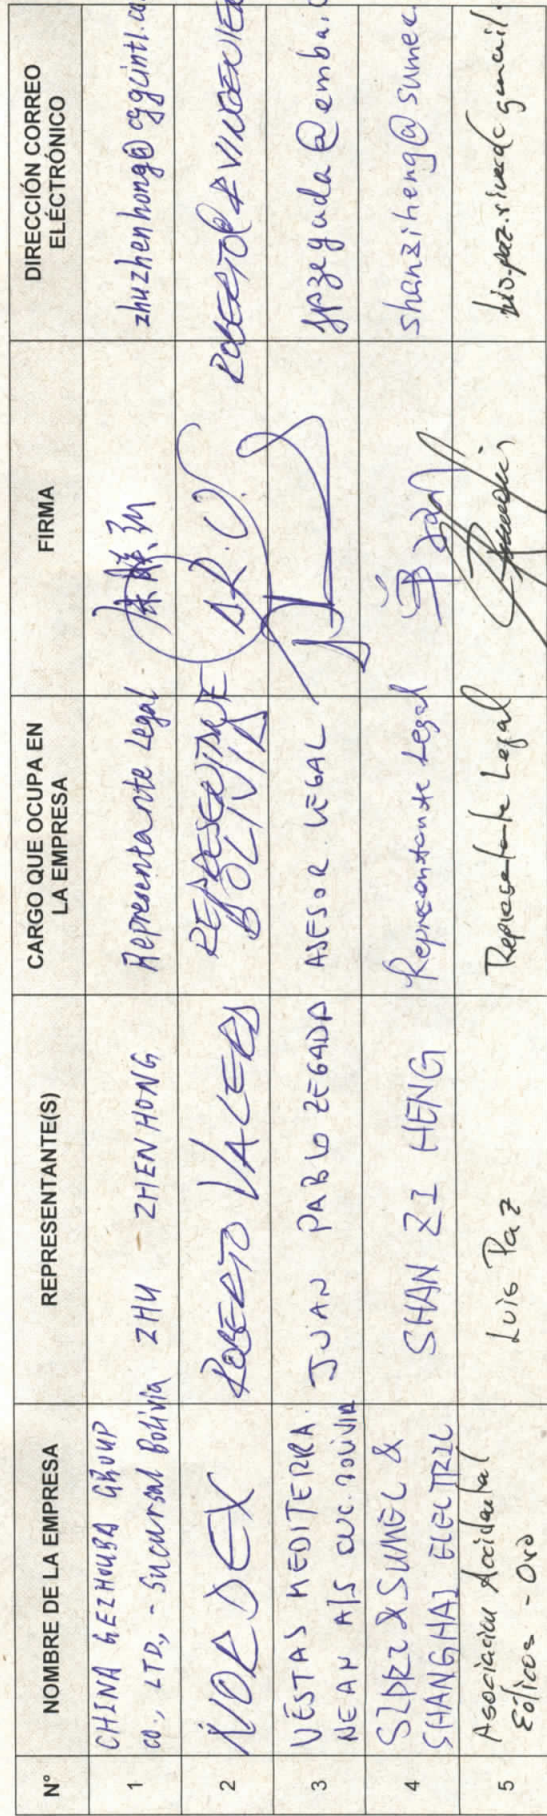 N° NOMBRE DE LA EMPRESA REPRESENTANTE(S) CARGO QUE OCUPA EN LA EMPRESA FIRMA DIRECCIÓN CORREO ELÉCTRÓNICO
1 CHINA GEZHOUBA GROUP
CO., LTD., - Sucursal Bolivia ZHU - ZHENHONG Representante Legal zhuzhenhong@cggcintl.co
2 NORDEX ROBERTO VALERS REPRESENTANTE
BOLIVIA
3 VESTAS MEDITERRA
NEAN A/S SUC. BOLIVIA JUAN PABLO ZEGADA ASESOR LEGAL jpzegada@emba.
4 & SUMEC &
SHANGHAI ELECTRIC SHAN ZI HENG Representante Legal shanziheng@sumec.
5 Asociacion Accidental
Eólicos - Oro Luis Paz Representante Legal